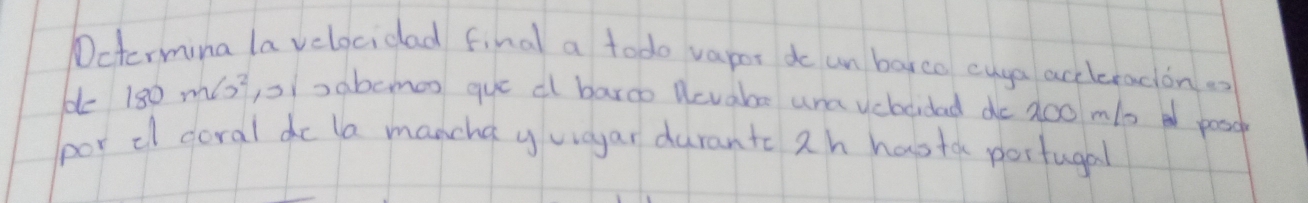 Determina la velocidad final a todo vapor de un barco cuya aceleración es
de 180 m/s², si sabemos que el barco llevaba una velocidad de 200 m/s al pasar
por el coral de la mancha y viajar durante 2h hasta portugal